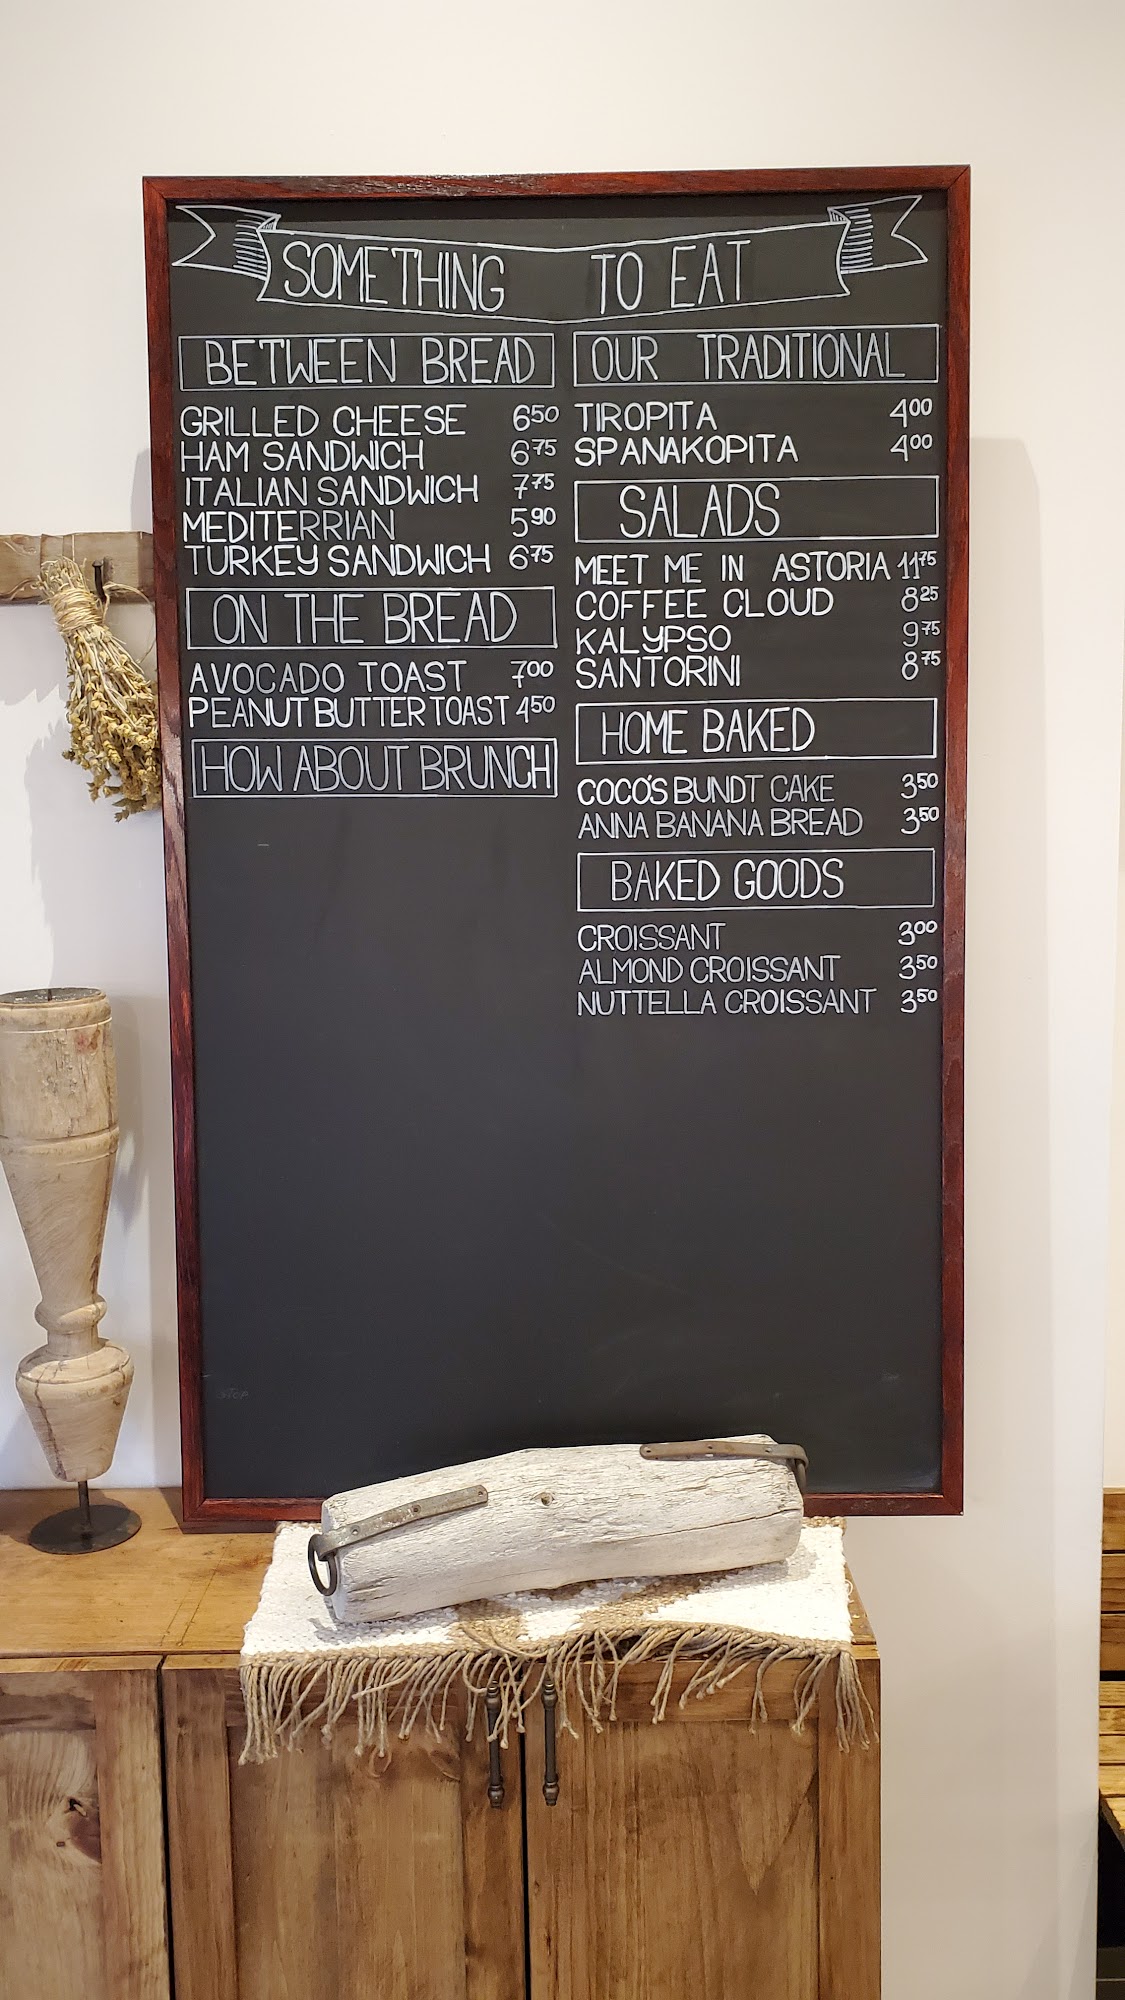 SOMETHING TO EAT
BETWEEN BREAD
GRILLED CHEESE 6 50
HAM SANDWICH 6 75
ITALIAN SANDWICH 7 75
MEDITERRIAN 5 90
TURKEY SANDWICH 6 75
ON THE BREAD
AVOCADO TOAST 7 00
PEANUT BUTTER TOAST 4 50
HOW ABOUT BRUNCH
OUR TRADITIONAL
TIROPITA 4 00
SPANAKOPITA 4 00
SALADS
MEET ME IN ASTORIA 11 75
COFFEE CLOUD 8 25
KALYPSO 9 75
SANTORINI 8 75
HOME BAKED
COCO'S BUNDT CAKE 3 50
ANNA BANANA BREAD 3 50
BAKED GOODS
CROISSANT 3 00
ALMOND CROISSANT 3 50
NUTTELLA CROISSANT 3 50
STOP